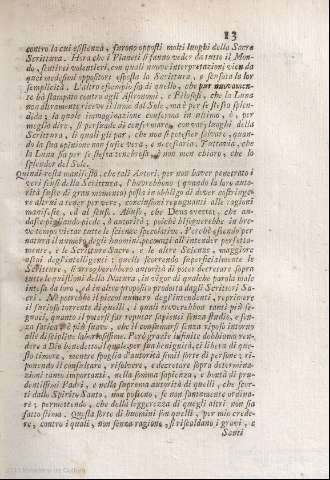 13
contro la cui esistenza, furono opposti molti luoghi della Sacra
Scrittura. Hora che i Pianeti si fanno veder da tutto il Mon-
do, sentirei volentieri, con quali nuove interpretazioni vien da
quei medesimi oppositori esposta la Scrittura, e scusata la lor
semplicità. L'altro esempio sia di quello, che pur nuovamente
ha stampato contro agli Astronomi, e Filosofi, che la Luna
non altramente riceve il lume dal Sole, ma è per se stessa splen-
dida; la quale immaginazione conferma in ultimo, ò, per
meglio dire, si persuade di confermare con varj luoghi della
Scrittura, li quali gli par, che non si potesser salvare, quan-
do la sua opinione non fosse vera, e necessaria. Tuttavia, che
la Luna sia per se stessa tenebrosa, è non men chiaro, che lo
splendor del Sole.
Quindi resta manifesto, che tali Autori, per non haver penetrato i
veri sensi della Scrittura, l'havrebbono (quando la loro auto-
rità fosse di gran momento) posta in obbligo di dover costringe-
re altrui a tener per vere, conclusioni repugnanti alle ragioni
manifeste, ed al senso. Abuso, che Deus avertat, che an-
dasse pigliando piede, ò autorità; poiché bisognerebbe in bre-
ve tempo vietar tutte le scienze speculative. Perché essendo per
natura il numero degli homini, poco atti all'intender perfetta-
mente, e le Scritture Sacre, e le altre Scienze, maggiore
assai degl'intelligenti; quelli scorrendo superfizialmente le
Scritture, si arrogherebbero autorità di poter decretare sopra
tutte le quistioni della Natura, in vigor di qualche parola male
intesa da loro, ed in altro proposito prodotta dagli Scrittori Sa-
cri. Nè potrebbe il piccol numero degl'intendenti, reprimere
il furioso torrente di quelli, i quali troverebbono tanti più se-
guaci, quanto il potersi far reputar sapienti senza studio, e sen-
za fatica è più soave, che il consumarsi senza riposo intorno
alle discipline laboriosissime. Però grazie infinite dobbiamo ren-
dere a Dio benedetto, il quale per sua benignità, ci libera di que-
sto timore, mentre spoglia d'autorità simil sorte di persone; ri-
ponendo il consultare, risolvere, e decretare sopra determina-
zioni tanto importanti, nella somma sapienza, e bontà di pru-
dentissimi Padri, e nella suprema autorità di quelli, che scor-
ti dallo Spirito Santo, non possono, se non santamente ordina-
re; permettendo, che della leggerezza di quegli altri non sia
fatto stima. Questa sorte di huomini son quelli, per mio crede-
re, contro i quali, non senza ragione, si riscaldano i gravi, e
Santi